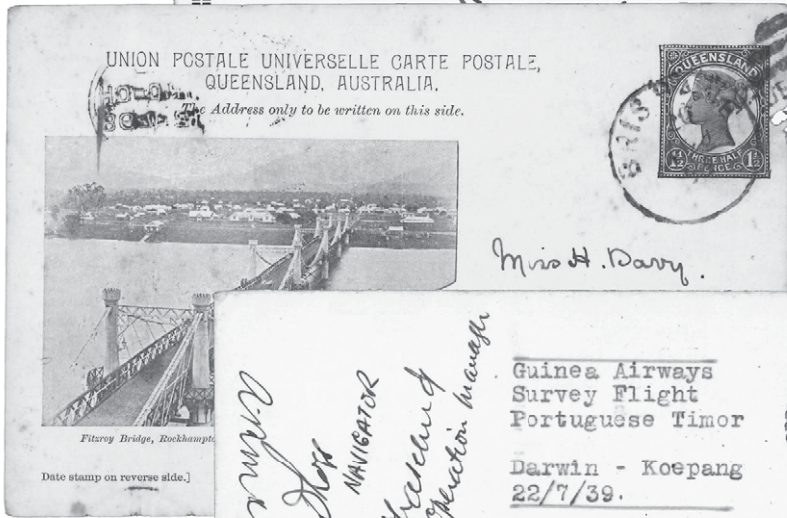 UNION POSTALE UNIVERSELLE CARTE POSTALE,
QUEENSLAND, AUSTRALIA.
The Address only to be written on this side.
QUEENSLAND
THREE HALF
PENCE
1½ 1½
BRIS
Miss H. Davy.
Fitzroy Bridge, Rockhampto
Date stamp on reverse side.]
NAVIGATOR
Operation Manager
Guinea Airways
Survey Flight
Portuguese Timor
Darwin - Koepang
22/7/39.